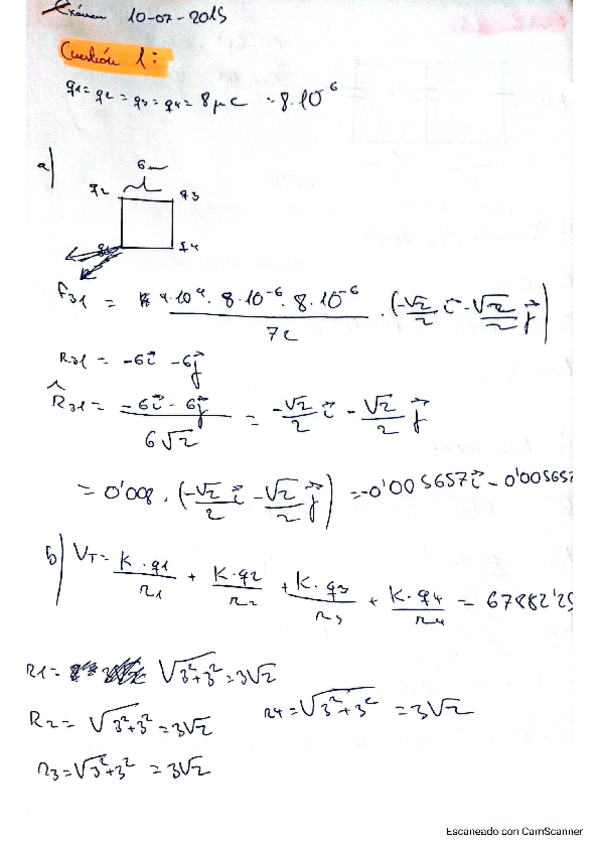 Exámen 10-07-2015
Cuestión 1:
q1 = q2 = q3 = q4 = 8 μC = 8·10^-6
a)
6 m
q2 q3
q1 q4
F31 = 9·10^9 · 8·10^-6 · 8·10^-6 / 72 · (-√2/2 i⃗ - √2/2 j⃗)
R31 = -6i⃗ - 6j⃗
R̂31 = -6i⃗ - 6j⃗ / 6√2 = -√2/2 i⃗ - √2/2 j⃗
= 0'008 · (-√2/2 i⃗ - √2/2 j⃗) = -0'005657i⃗ - 0'005657
b) VT = K·q1/r1 + K·q2/r2 + K·q3/r3 + K·q4/r4 = 67882'25
R1 = √3²+3² = 3√2
R2 = √3²+3² = 3√2 r4 = √3²+3² = 3√2
r3 = √3²+3² = 3√2
Escaneado con CamScanner